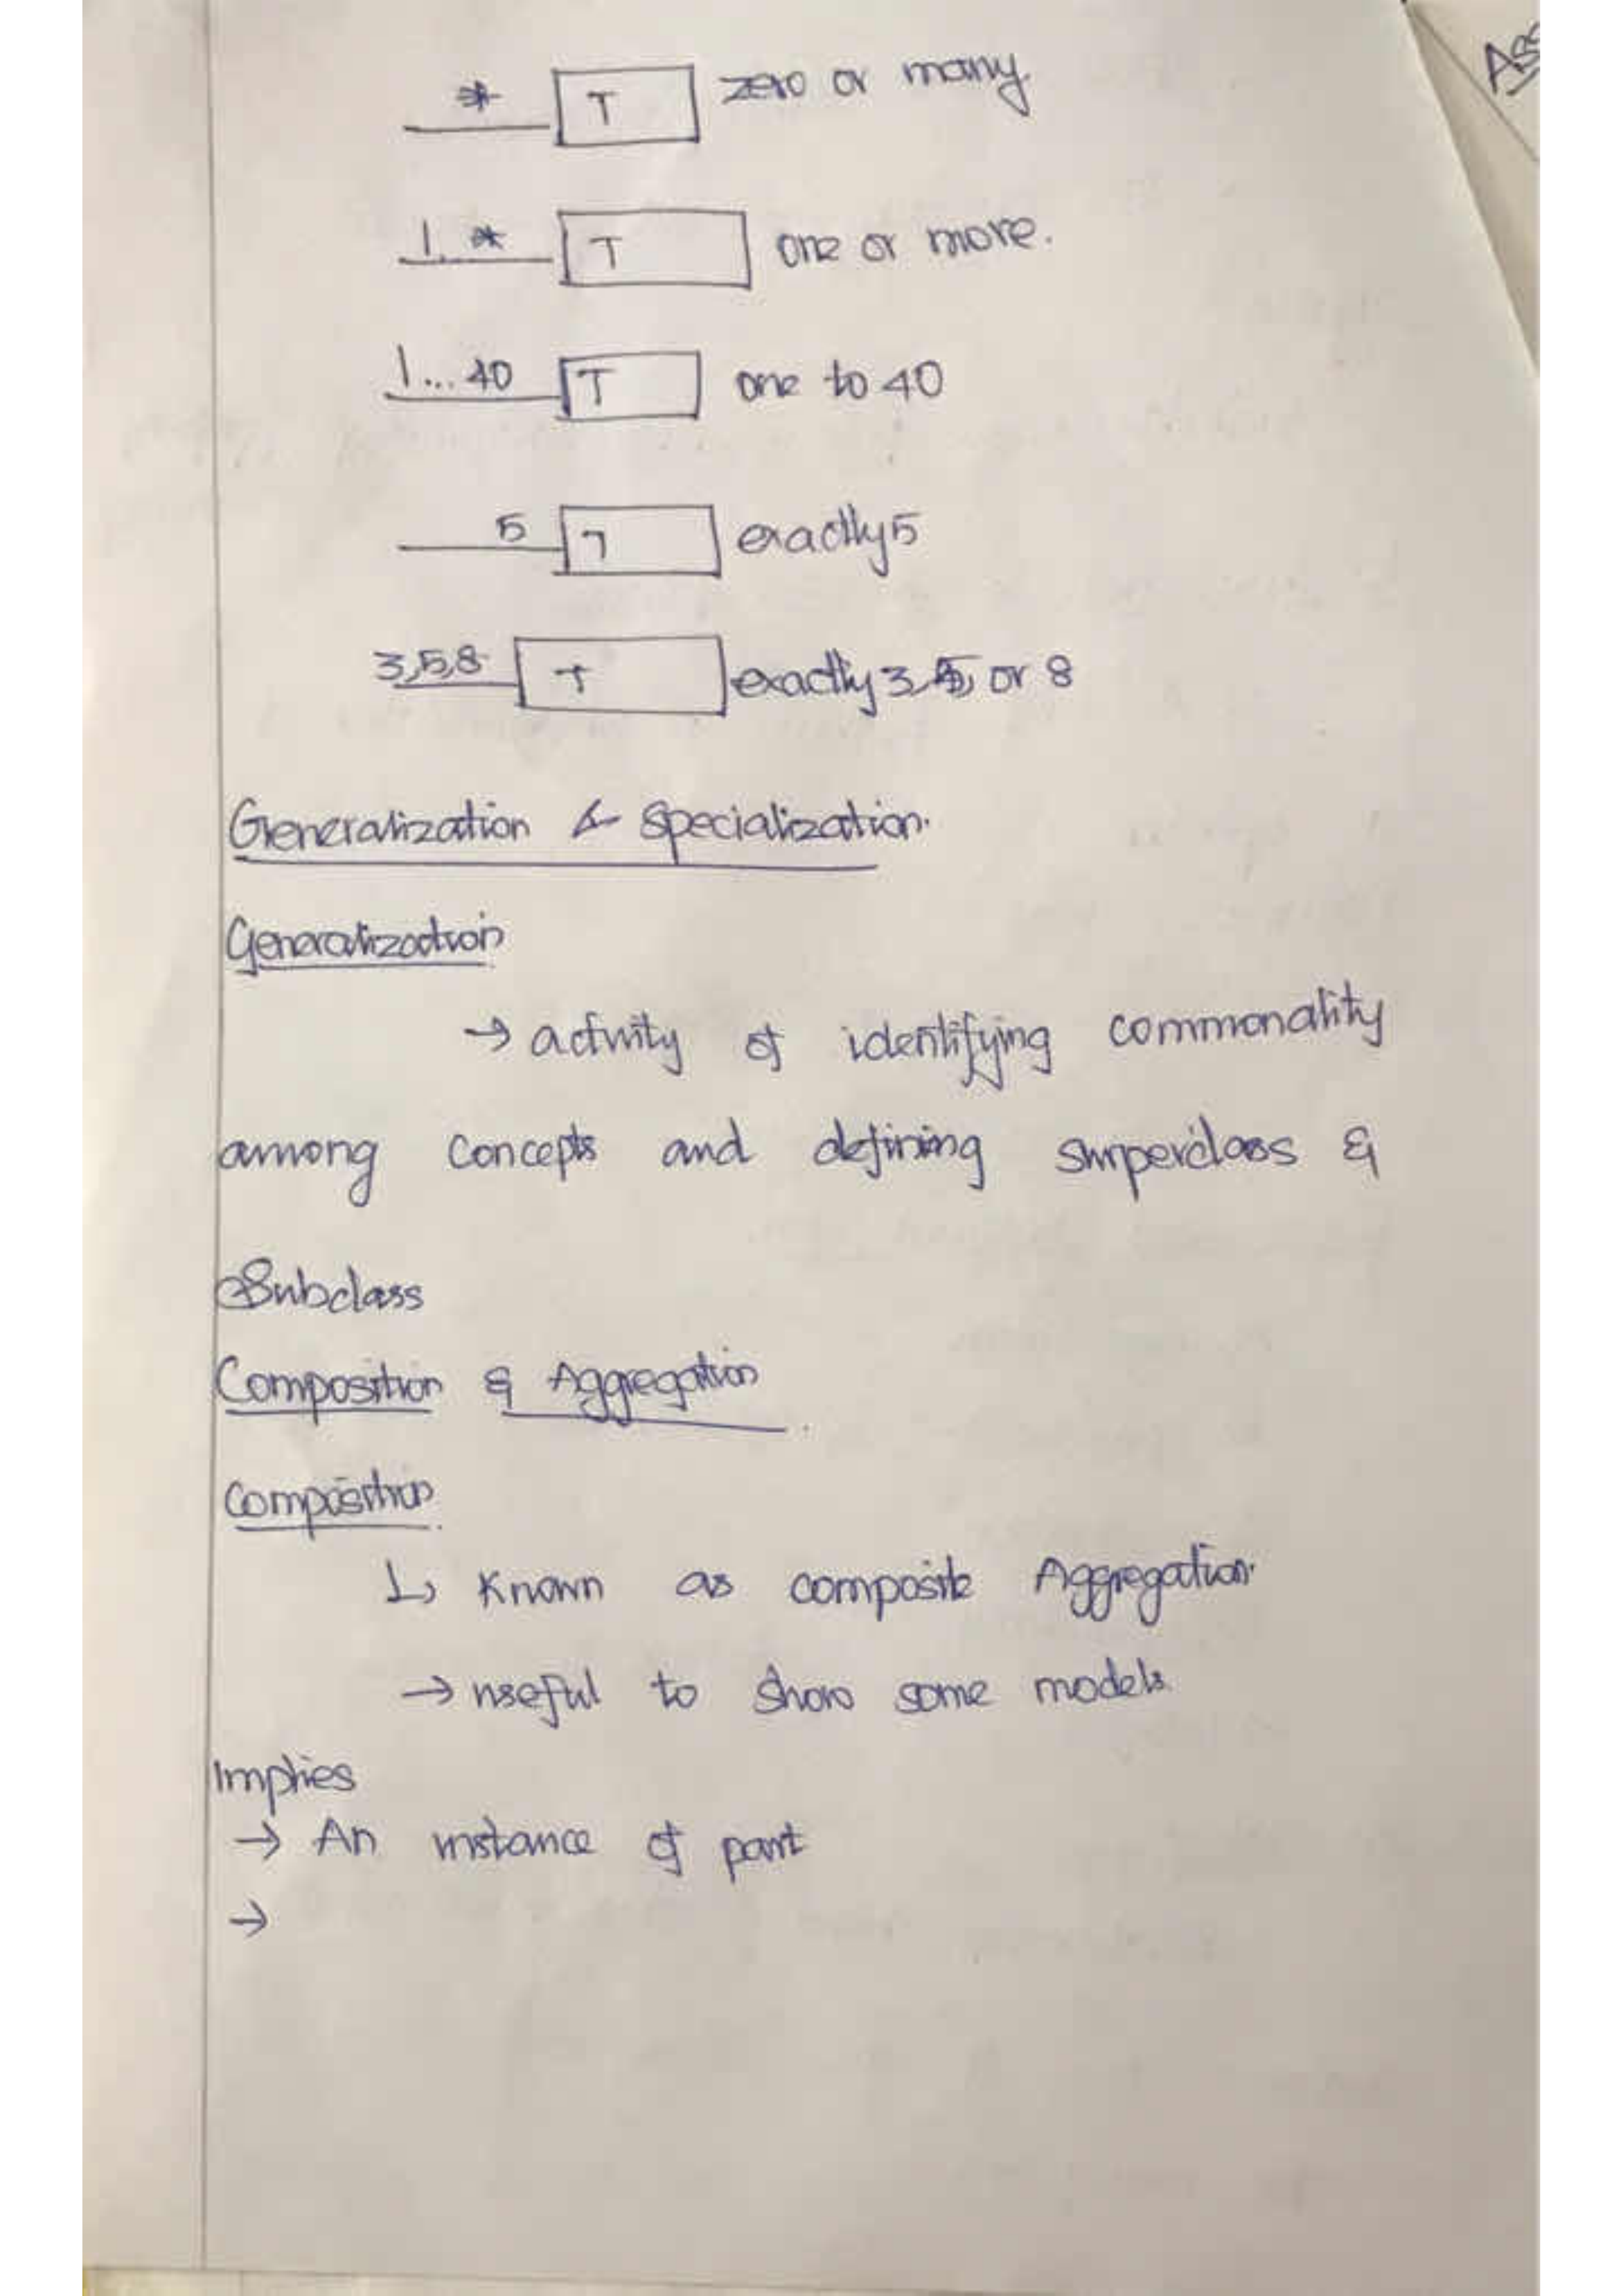 Ass
* T zero or many.
1..* T one or more.
1...40 T one to 40
5 T exactly 5
3,5,8 T exactly 3, 5, or 8
Generalization & Specialization.
Generalization
→ activity of identifying commonality
among concepts and defining smperclass &
Subclass
Composition & Aggregation
Composition
↳ Known as composite Aggregation.
→ useful to show some models.
Implies
→ An instance of part
→